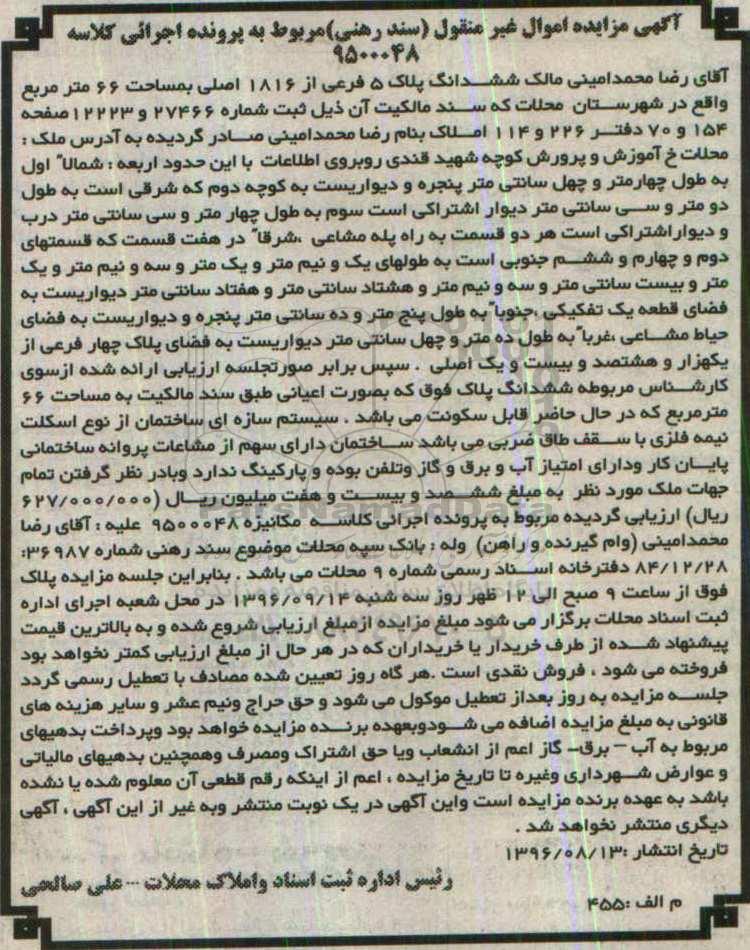 آگهی مزایده اموال غیر منقول (سند رهنی)مربوط به پرونده اجرائی کلاسه
۹۵۰۰۰۴۸
آقای رضا محمدامینی مالک ششدانگ پلاک ۵ فرعی از ۱۸۱۶ اصلی بمساحت ۶۶ متر مربع
واقع در شهرستان محلات که سند مالکیت آن ذیل ثبت شماره ۲۷۴۶۶ و ۱۲۲۲۳صفحه
۱۵۴ و ۷۰ دفتر ۲۲۶ و ۱۱۴ املاک بنام رضا محمدامینی صادر گردیده به آدرس ملک :
محلات خ آموزش و پرورش کوچه شهید قندی روبروی اطلاعات با این حدود اربعه : شمالا" اول
به طول چهارمتر و چهل سانتی متر پنجره و دیواریست به کوچه دوم که شرقی است به طول
دو متر و سی سانتی متر دیوار اشتراکی است سوم به طول چهار متر و سی سانتی متر درب
و دیواراشتراکی است هر دو قسمت به راه پله مشاعی ،شرقا" در هفت قسمت که قسمتهای
دوم و چهارم و ششم جنوبی است به طولهای یک و نیم متر و یک متر و سه و نیم متر و یک
متر و بیست سانتی متر و سه و نیم متر و هشتاد سانتی متر و هفتاد سانتی متر دیواریست به
فضای قطعه یک تفکیکی ،جنوبا"به طول پنج متر و ده سانتی متر پنجره و دیواریست به فضای
حیاط مشاعی ،غربا"به طول ده متر و چهل سانتی متر دیواریست به فضای پلاک چهار فرعی از
یکهزار و هشتصد و بیست و یک اصلی . سپس برابر صورتجلسه ارزیابی ارائه شده ازسوی
کارشناس مربوطه ششدانگ پلاک فوق که بصورت اعیانی طبق سند مالکیت به مساحت ۶۶
مترمربع که در حال حاضر قابل سکونت می باشد . سیستم سازه ای ساختمان از نوع اسکلت
نیمه فلزی با سقف طاق ضربی می باشد ساختمان دارای سهم از مشاعات پروانه ساختمانی
پایان کار ودارای امتیاز آب و برق و گاز وتلفن بوده و پارکینگ ندارد وبادر نظر گرفتن تمام
جهات ملک مورد نظر به مبلغ ششصد و بیست و هفت میلیون ریال (۶۲۷/۰۰۰/۰۰۰
ریال) ارزیابی گردیده مربوط به پرونده اجرائی کلاسه مکانیزه ۹۵۰۰۰۴۸ علیه : آقای رضا
محمدامینی (وام گیرنده و راهن) وله : بانک سپه محلات موضوع سند رهنی شماره ۳۶۹۸۷:
۸۴/۱۲/۲۸ دفترخانه اسناد رسمی شماره ۹ محلات می باشد . بنابراین جلسه مزایده پلاک
فوق از ساعت ۹ صبح الی ۱۲ ظهر روز سه شنبه ۱۳۹۶/۰۹/۱۴ در محل شعبه اجرای اداره
ثبت اسناد محلات برگزار می شود مبلغ مزایده ازمبلغ ارزیابی شروع شده و به بالاترین قیمت
پیشنهاد شده از طرف خریدار یا خریداران که در هر حال از مبلغ ارزیابی کمتر نخواهد بود
فروخته می شود ، فروش نقدی است .هر گاه روز تعیین شده مصادف با تعطیل رسمی گردد
جلسه مزایده به روز بعداز تعطیل موکول می شود و حق حراج ونیم عشر و سایر هزینه های
قانونی به مبلغ مزایده اضافه می شودوبعهده برنده مزایده خواهد بود وپرداخت بدهیهای
مربوط به آب – برق- گاز اعم از انشعاب ویا حق اشتراک ومصرف وهمچنین بدهیهای مالیاتی
و عوارض شهرداری وغیره تا تاریخ مزایده ، اعم از اینکه رقم قطعی آن معلوم شده یا نشده
باشد به عهده برنده مزایده است واین آگهی در یک نوبت منتشر وبه غیر از این آگهی ، آگهی
دیگری منتشر نخواهد شد .
تاریخ انتشار :۱۳۹۶/۰۸/۱۳
رئیس اداره ثبت اسناد واملاک محلات -- علی صالحی
م الف :۴۵۵
ParsNamadData